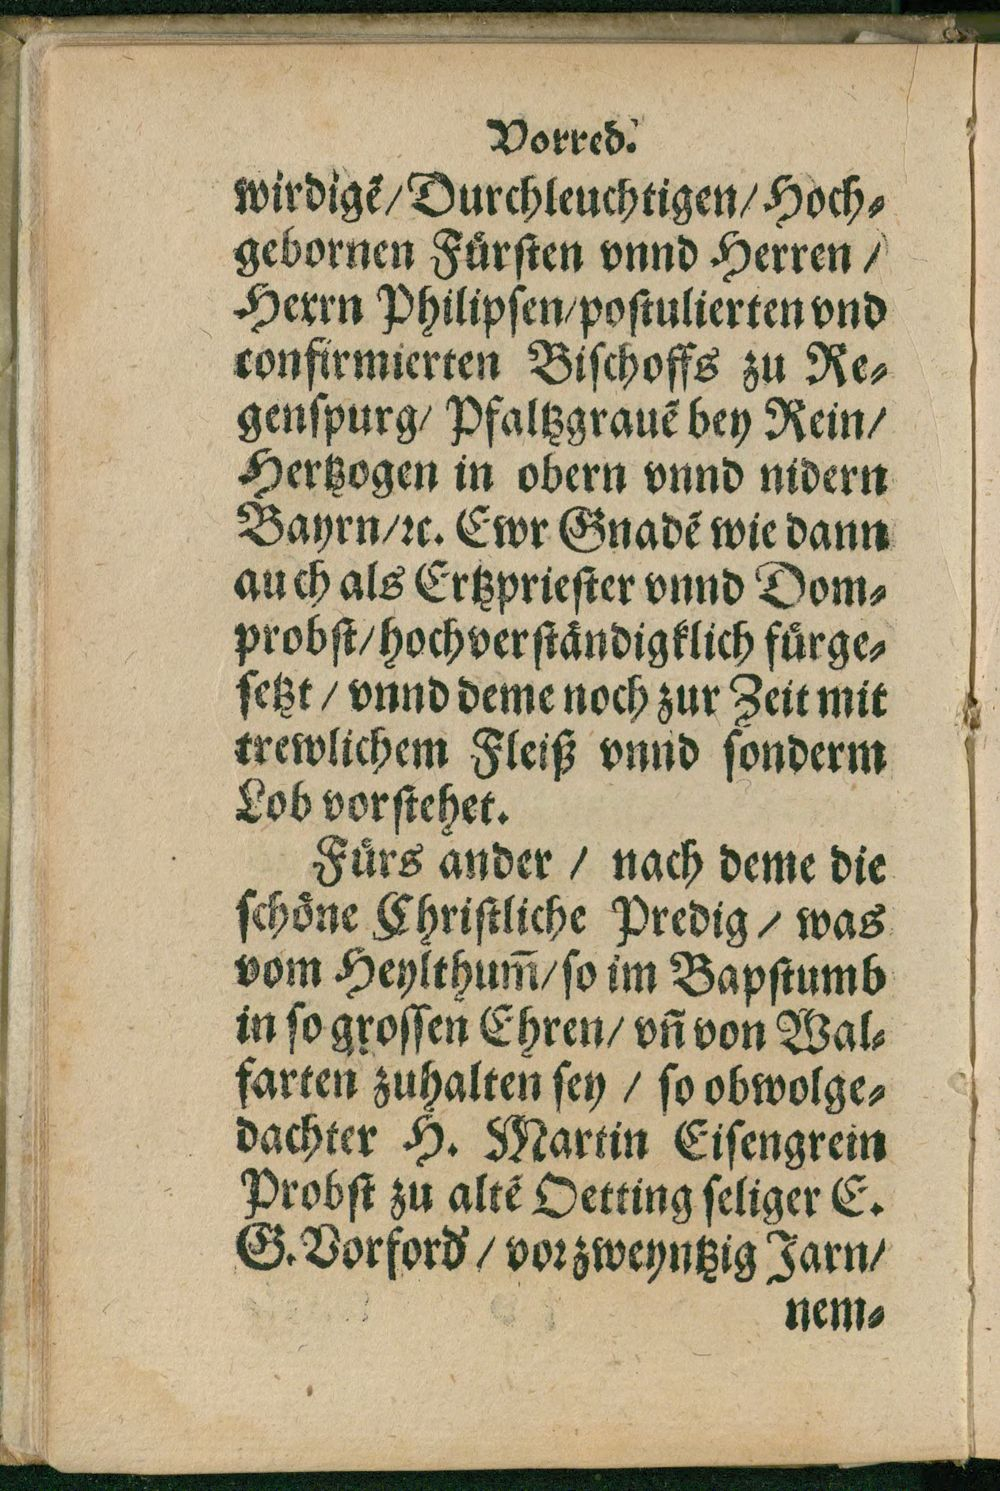 Vorred.
wirdigẽ/Durchleuchtigen/Hoch⸗
gebornen Fürſten vnnd Herren /
Herrn Philipſen/poſtulierten vnd
confirmierten Biſchoffs zu Re⸗
genſpurg/ Pfaltzgrauẽ bey Rein/
Hertzogen in obern vnnd nidern
Bayrn/ꝛc. Ewr Gnadẽ wie dann
auch als Ertzprieſter vnnd Dom⸗
probſt/hochverſtändigklich fürge⸗
ſetzt / vnnd deme noch zur Zeit mit
trewlichem Fleiß vnnd ſonderm
Lob vorſtehet.
Fürs ander / nach deme die
ſchöne Chriſtliche Predig / was
vom Heylthum̃/ſo im Bapſtumb
in ſo groſſen Ehren/ vñ von Wal⸗
farten zuhalten ſey / ſo obwolge⸗
dachter H. Martin Eiſengrein
Probſt zu altẽ Oetting ſeliger E.
G. Vorford' / voꝛ zweyntzig Jarn/
nem⸗